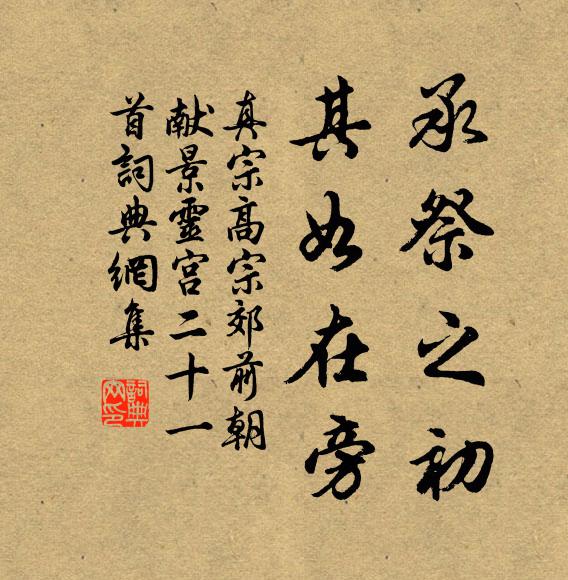 承祭之初
其如在旁
真宗高宗郊前朝
献景靈宮二十一
首詞典網集
詞典网印